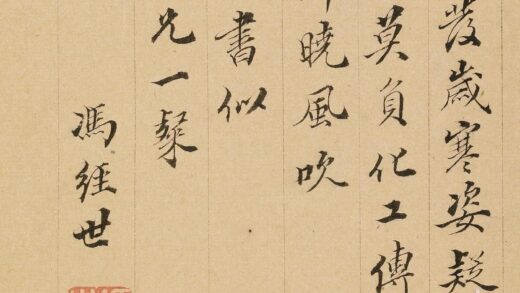 發歲寒姿疑
莫負化工傳
曉風吹
書似
兄一粲
馮經世